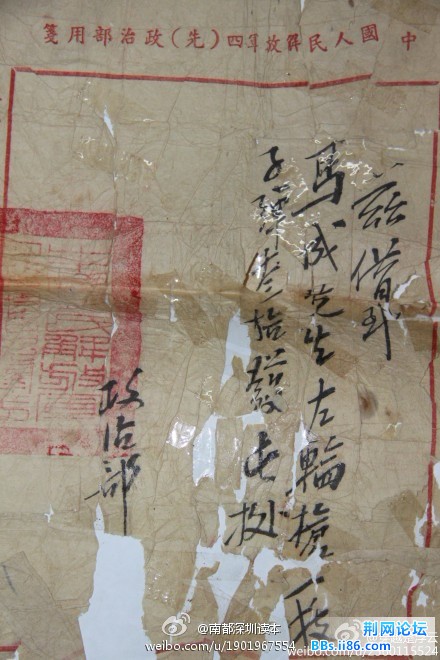 中國人民解放軍四(先)政治部用箋
茲借到
馬成先生左輪槍一枝
子彈叁拾發此據
政治部
@南都深圳读本
weibo.com/u/1901967554
荆网论坛
BBs.ii86.com